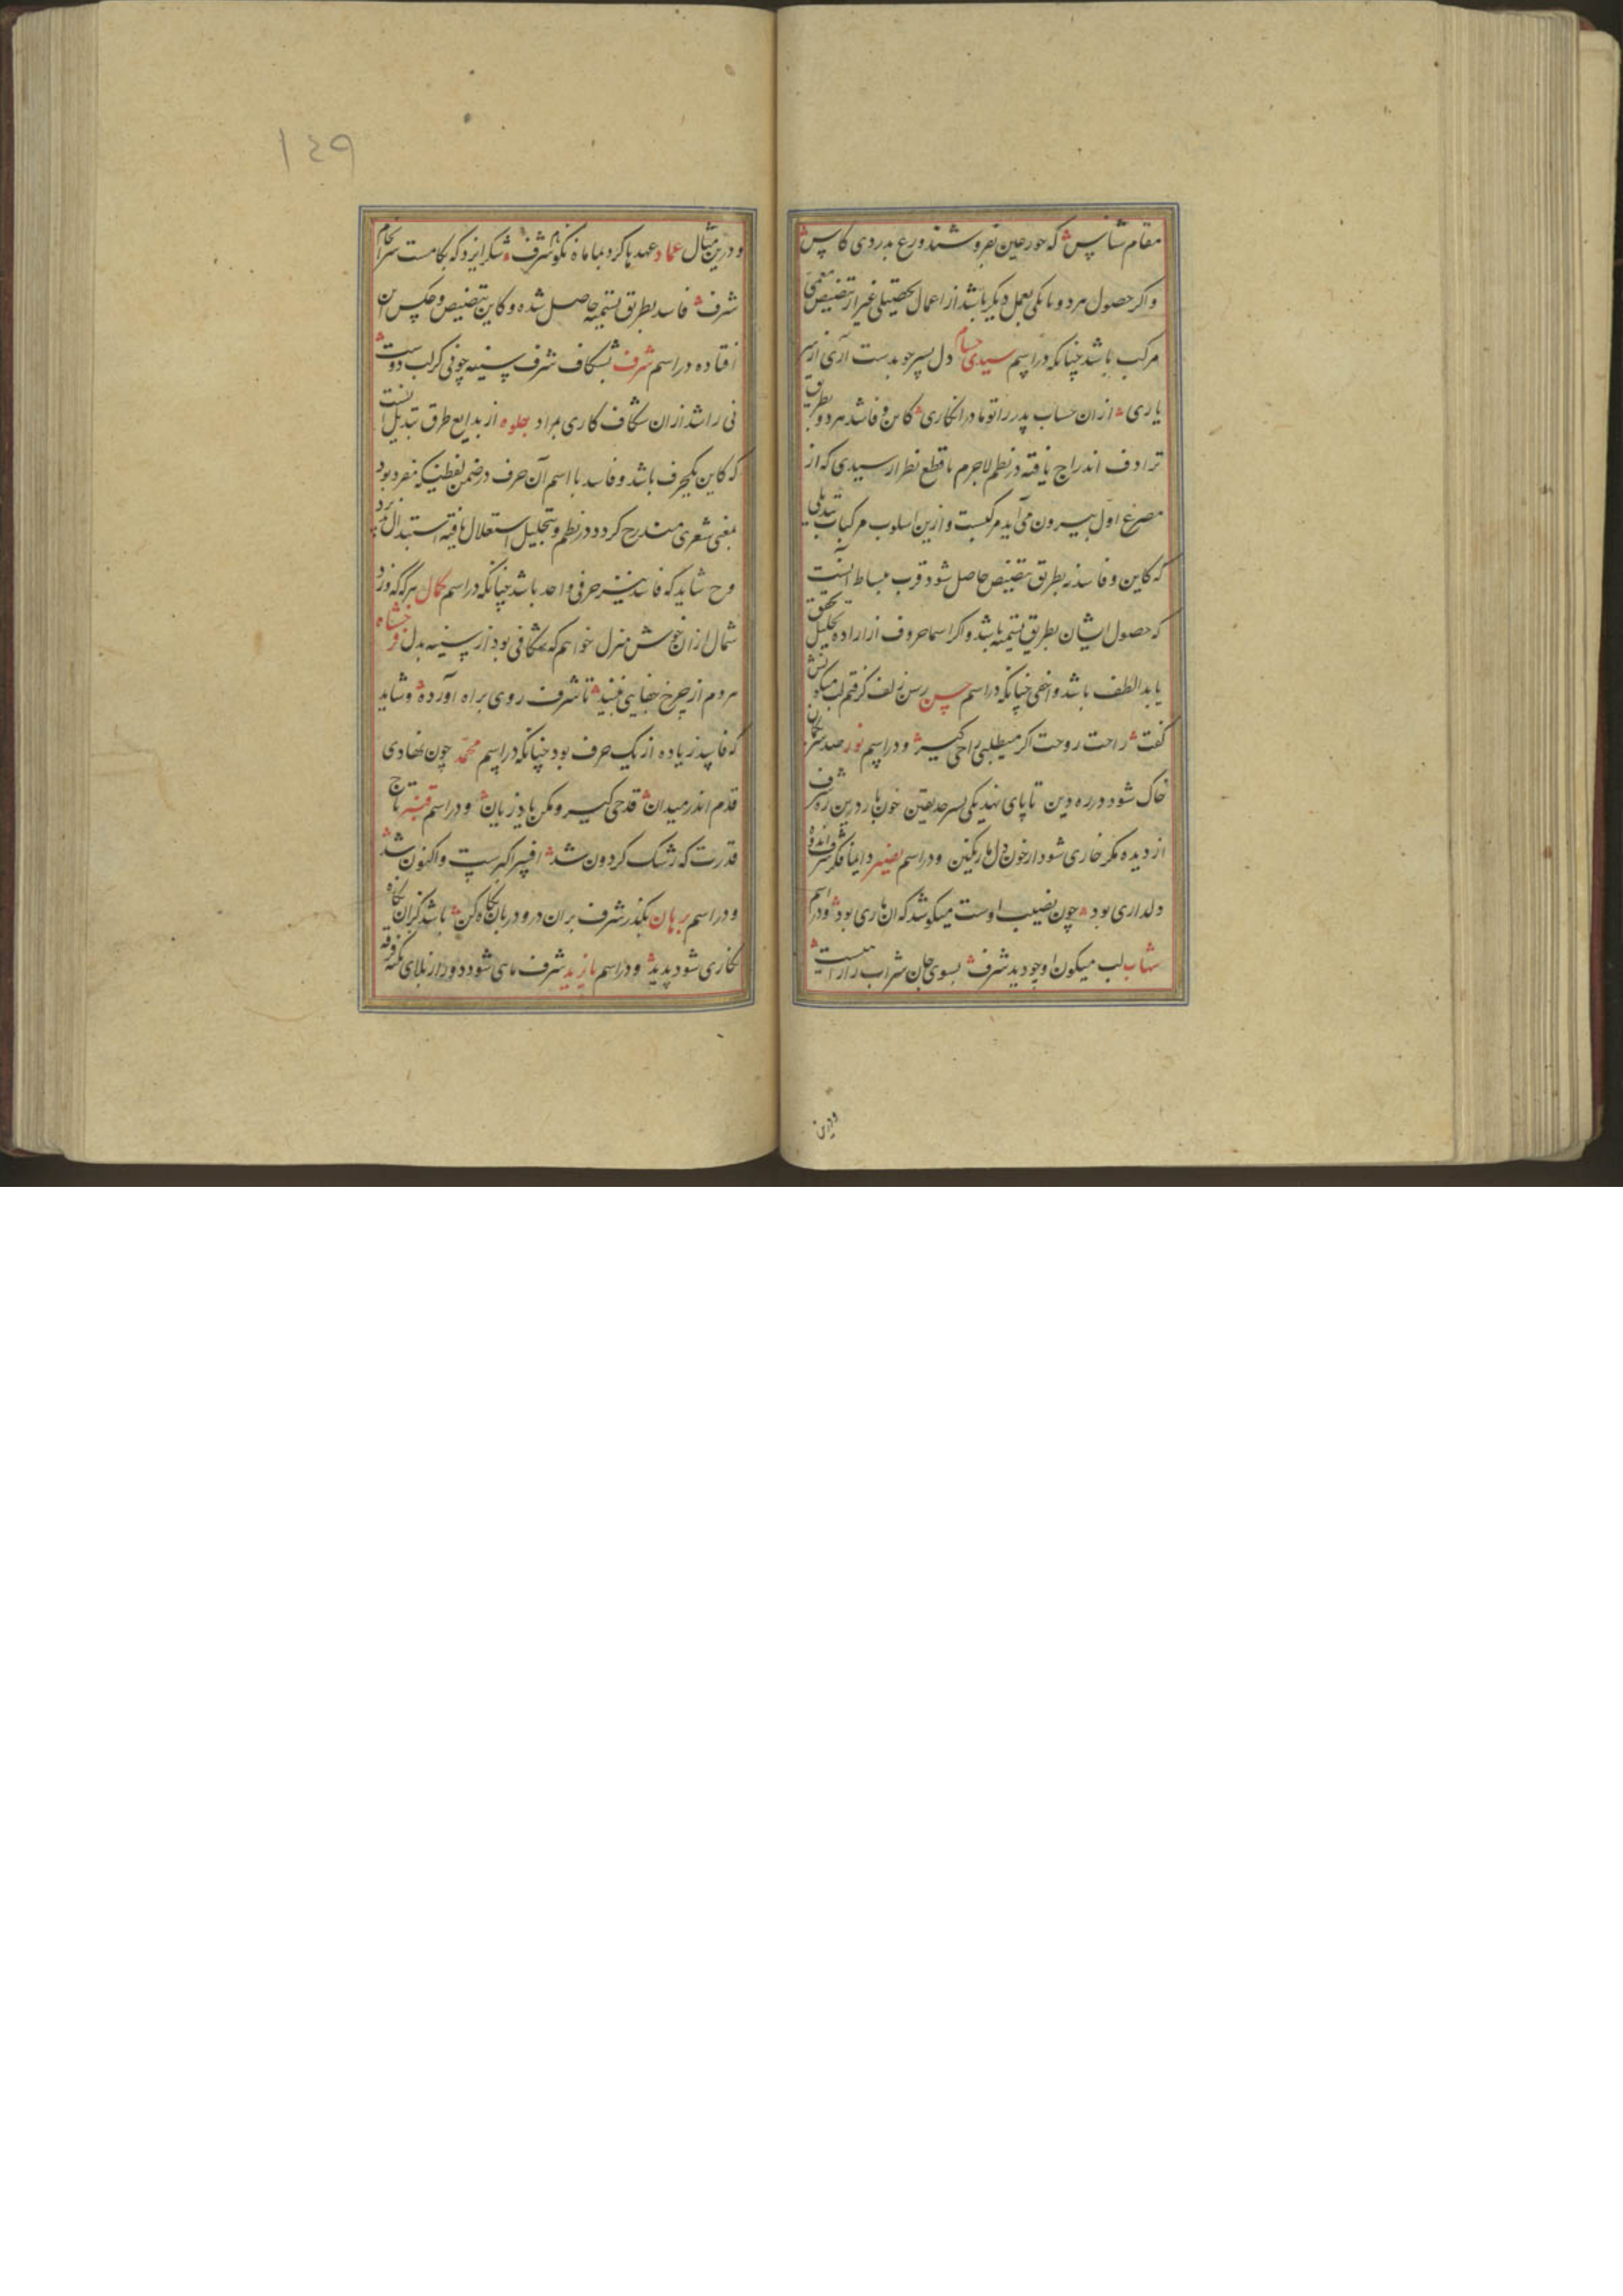 مقام شناس که حور عین نفروشند ورع بدردی کاس
واکر حصول هر دو یا یکی بعمل دیکر باشد از اعمال تحصیلی غیر از تنصیص معمی
مرکب باشد چنانکه در اسم سیدی حسام دل بسر جو بدست آری از سر
یاری از ان حساب پدر را تو ما در انکاری کاین و فاسد هر دو بطریق
ترادف اندراج یافته در نظم لاجرم با قطع نظر از سیدی که از
مصرع اول بیرون می آید مرکبست و ازین اسلوب مرکبات تبدیلی
که کاین و فاسد نه بطریق تنصیص حاصل شود قرب ببساط آنست
که حصول ایشان بطریق تسمیه باشد واکر اسما حروف از اراده تحلیل تحقق
یابد الطف باشد و اخفی چنانکه در اسم حسن رسن زلف کرفتم لب میکونش
کفت راحت روحت اکر میطلبی راحی کیر و در اسم نور صد سر
خاک شود در ره دین تا پای نهد یکی بسرحد یقین خون بار درین ره شرف
از دیده مکر خاری شود از خون دل ما رنکین و در اسم نصیر دایما فکر شرف
دلداری بود چون نصیب اوست میکوشد که ان یاری بود و در اسم
شهاب لب میکون او چو دید شرف بسوی جان شراب را
ودرین
١٤٩
ودرین مثال عماد عهد ها کرد بما ماه نکو نام شرف شکر ایزد که بکامست سرانجام
شرف فاسد بطریق تسمیه حاصل شده و کاین بتنصیص و عکس این
افتاده در اسم شرف بشکاف شرف سینه چو نی کز لب دوست
نی را شد از ان شکاف کاری بمراد جلوه از بدایع طرق تبدیل آنست
که کاین یکحرف باشد و فاسد با اسم آن حرف در ضمن لفظی که مفرد بود
بمعنی شعری مندرج کردد در نظم و بتحلیل استقلال یافته استبدال پذیرد
وح شاید که فاسد نیز حرفی واحد باشد چنانکه در اسم کمال هرکه که وزد
شمال از ان خوش منزل خواهم که شکافی بود از سینه بدل
مردم از چرخ جفا یی نبیند تا شرف روی براه آورده و شاید
که فاسد زیاده از یک حرف بود چنانکه در اسم محمد چون نهادی
قدم اندر میدان قدحی کیر و مکن یاد زیان و در اسم قنبر تاج
قدرت که رشک کردون شد افسر اکبرست و اکنون شد
ودر اسم برهان بکذر شرف بران در و دربان نکاه کن باشد کزان نکاه
نکاری شود پدید و در اسم بازید شرف ماسی شود دور از بلای تفرقه